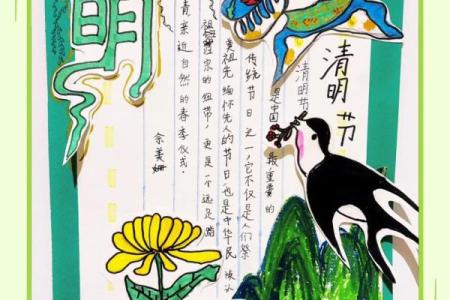 清明节
清明节是中国最重要的
传统节日之一,它不仅是人们祭
奠祖先缅怀先人的节日,也是中华民族认
祖归宗的纽带,更是一个远足踏
青亲近自然的春季仪式.
余美姗
明